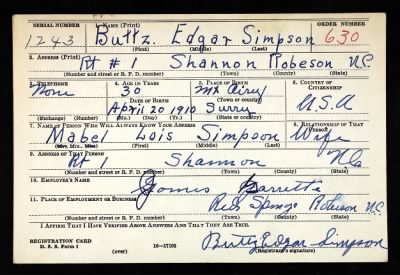 SERIAL NUMBER 1. NAME (Print) ORDER NUMBER
1243 Buttz Edgar Simpson 630
(First) (Middle) (Last)
2. ADDRESS (Print)
Rt # 1 Shannon Robeson N.C.
(Number and street or R. F. D. number) (Town) (County) (State)
3. TELEPHONE 4. AGE IN YEARS 5. PLACE OF BIRTH 6. COUNTRY OF CITIZENSHIP
None 30 Mt Airy
DATE OF BIRTH (Town or county)
April 20 1910 Surry U.S.A
(Exchange) (Number) (Mo.) (Day) (Yr.) (State or country)
7. NAME OF PERSON WHO WILL ALWAYS KNOW YOUR ADDRESS 8. RELATIONSHIP OF THAT PERSON
Mabel Lois Simpson Wife
(Mr., Mrs., Miss) (First) (Middle) (Last)
9. ADDRESS OF THAT PERSON
Rt Shannon N.C.
(Number and street or R. F. D. number) (Town) (County) (State)
10. EMPLOYER'S NAME
11. PLACE OF EMPLOYMENT OR BUSINESS
Red Springs Robeson N.C.
(Number and street or R. F. D. number) (Town) (County) (State)
I AFFIRM THAT I HAVE VERIFIED ABOVE ANSWERS AND THAT THEY ARE TRUE.
REGISTRATION CARD
D. S. S. Form 1 (over) 16—17105
Buttz Edgar Simpson
(Registrant's signature)